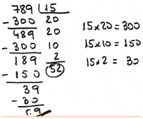 789 | 15
- 300 20
489 20
- 300 10
189 2
- 150 52
39
- 30
5.9
15×20=300
15×10=150
15×2= 30